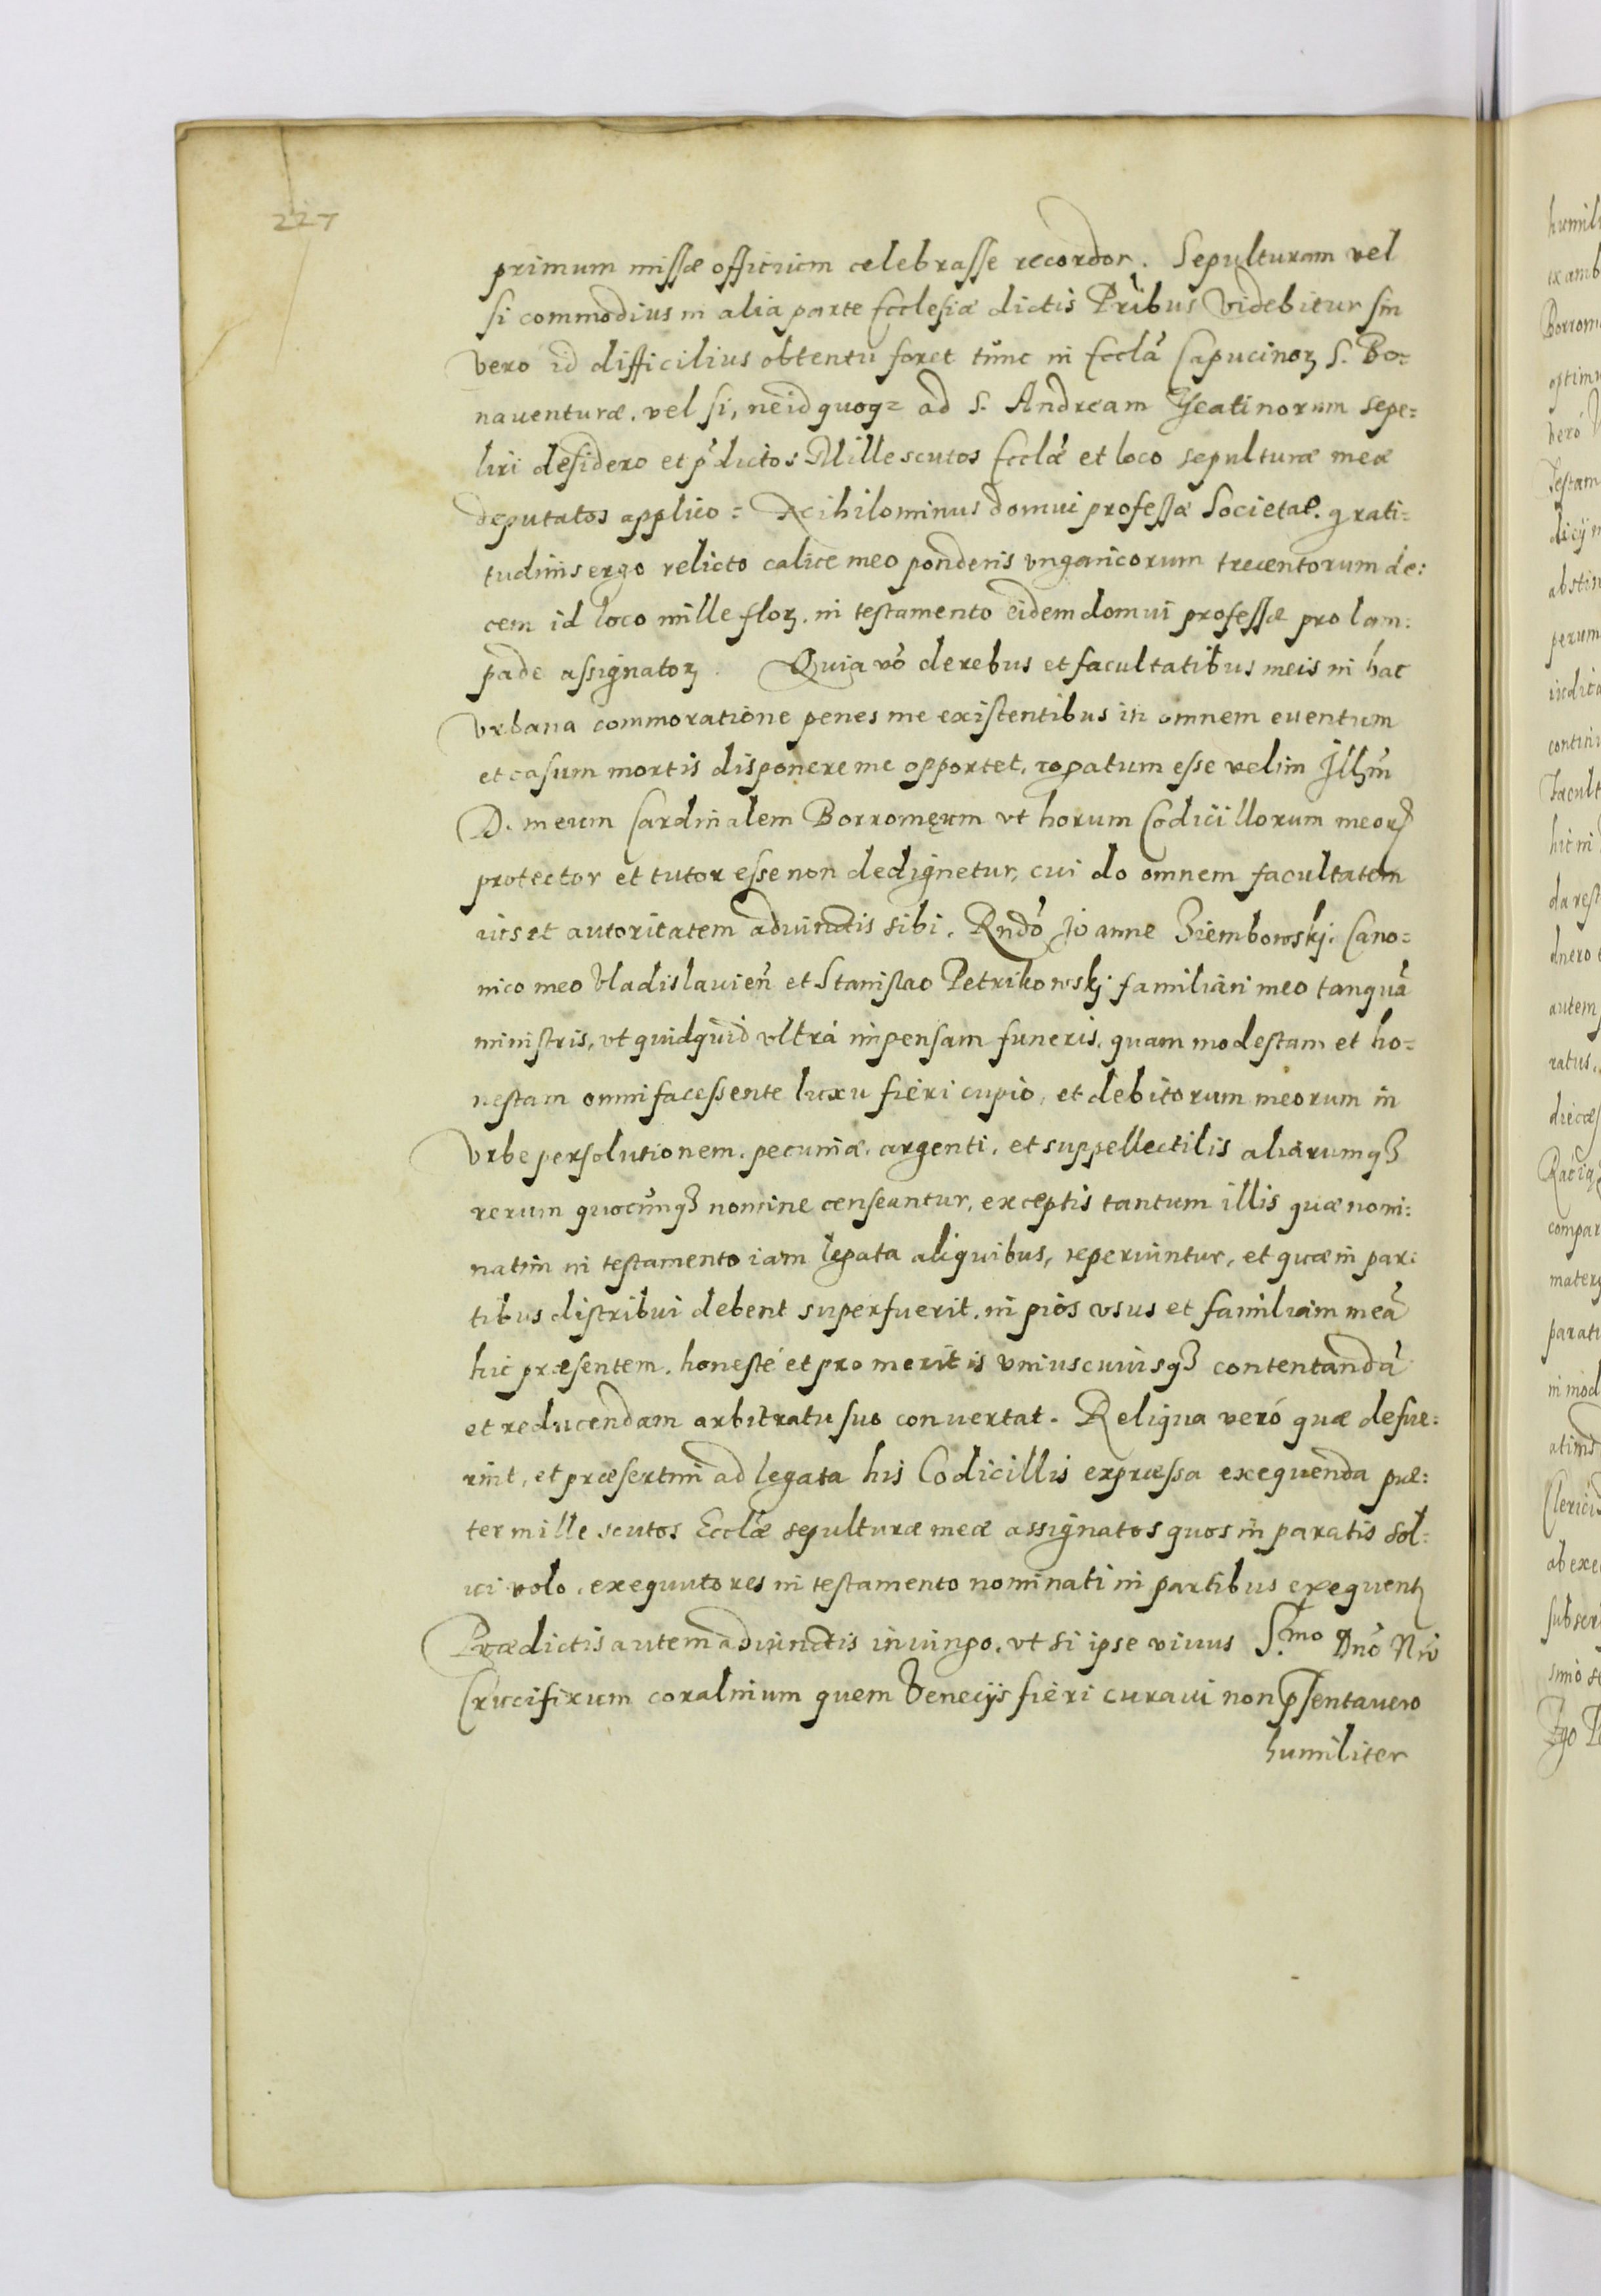 227
primum missæ officium celebrasse recordor. Sepulturam vel
si commodius in alia parte Ecclesiæ dictis Pribus videbitur sin
vero id difficilius obtentu foret tunc in Eccla Capucinoꝝ S. Bo=
nauenturæ. vel si, ne id quoqꝫ ad S. Andream Theatinorum sepe=
liri desidero et p̄dictos Mille scutos Ecclæ et loco sepulturæ meæ
deputatos applico: Nihilominus domui professæ Societat. grati=
tudinis ergo relicto calice meo ponderis vngaricorum trecentorum de:
cem id loco mille floꝝ. in testamento eidem domui professæ pro lam:
pade assignatoꝝ. Quia vō de rebus et facultatibus meis in hac
vrbana commoratione penes me existentibus in omnem euentum
et casum mortis disponere me opportet, rogatum esse velim Illm̄
D. meum Cardinalem Borromęum vt horum Codicillorum meoꝝ
protector et tutor esse non dedignetur, cui do omnem facultatem
ius et autoritatem adiunctis sibi. Rndō Joanne Ziembowskj. Cano=
nico meo Vladislauien̄ et Stanislao Petrikowskj familiari meo tanquā
ministris, vt quidquid vltrà impensam funeris, quam modestam et ho=
nestam omni facessente luxu fieri cupio, et debitorum meorum in
vrbe persolutionem. pecuniæ. argenti. et suppellectilis aliarumqꝫ
rerum quocunqꝫ nomine censeantur, exceptis tantum illis quæ nomi:
natim in testamento iam legata aliquibus, reperiuntur, et quæ in par:
tibus distribui debent superfuerit. in pios vsus et familiam meā
hic præsentem. honestè et pro meritis vniuscuiusqꝫ contentandā
et reducendam arbitratu suo conuertat. Reliqua verò quæ defue:
rint, et præsertim ad legata his Codicillis expressa exequenda præ:
ter mille scutos Ecclæ sepulturæ meæ assignatos quos in paratis sol=
ui volo. exequutores in testamento nominati in partibus exequentꝫ
Prædictis autem adiunctis iniungo. vt si ipse viuus S.mo Dnō Nrō
Crucifixum coralinum quem Venecijs fieri curaui non p̄sentauero
humiliter